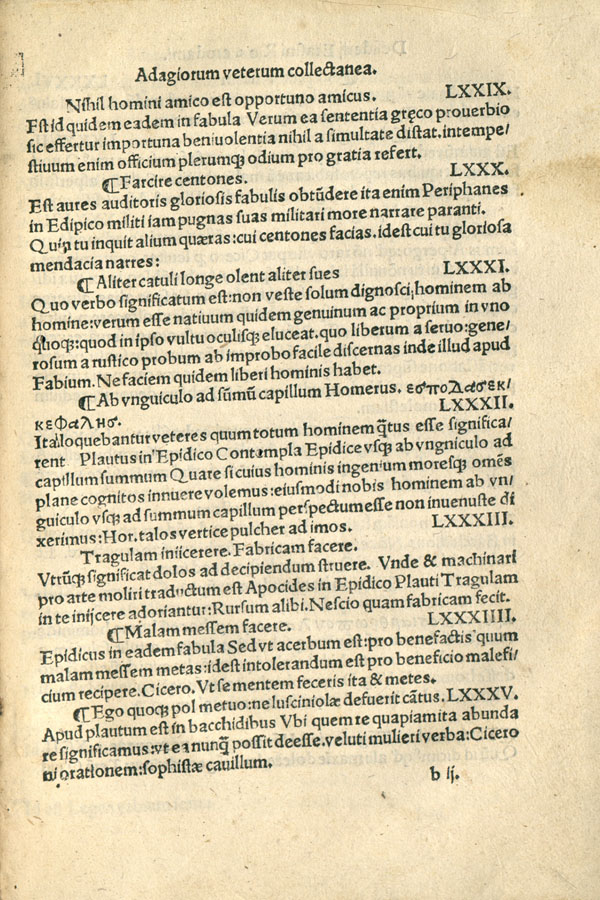 Adagiorum veterum collectanea.
Nihil homini amico est opportuno amicus. LXXIX.
Est id quidem eadem in fabula Verum ea sententia gręco prouerbio
sic effertur importuna beniuolentia nihil a simultate distat. intempe/
stiuum enim officium plerumqꝫ odium pro gratia refert.
LXXX.
¶Farcire centones.
Est aures auditoris gloriosis fabulis obtūdere ita enim Periphanes
in Edipico militi iam pugnas suas militari more narrare paranti.
Quin tu inquit alium quæras: cui centones facias. idest cui tu gloriosa
mendacia narres:
¶Aliter catuli longe olent aliter sues LXXXI.
Quo verbo significatum est: non veste solum dignosci hominem ab
homine: verum esse natiuum quidem genuinum ac proprium in vno
quoqꝫ: quod in ipso vultu oculisqꝫ eluceat. quo liberum a seruo: gene/
rosum a rustico probum ab improbo facile discernas inde illud apud
Fabium. Ne faciem quidem liberi hominis habet.
¶Ab vnguiculo ad sūmū capillum Homerus. εσποδασεκ/
LXXXII.
κεφαλησ.
Ita loquebantur veteres quum totum hominem q̄tus esse significa/
rent Plautus in Epidico Contempla Epidice vsqꝫ ab vngniculo ad
capillum summum Quare si cuius hominis ingenium moresqꝫ omēs
plane cognitos innuere volemus: eiusmodi nobis hominem ab vn/
guiculo vsqꝫ ad summum capillum perspectum esse non inuenuste di
xerimus: Hor. talos vertice pulcher ad imos. LXXXIII.
Tragulam iniicerere. Fabricam facere.
Vtrūqꝫ significat dolos ad decipiendum struere. Vnde & machinari
pro arte moliri traductum est Apocides in Epidico Plauti Tragulam
in te inijcere adoriantur: Rursum alibi. Nescio quam fabricam fecit.
¶Malam messem facere. LXXXIIII.
Epidicus in eadem fabula Sed vt acerbum est: pro benefactis quum
malam messem metas: idest intolerandum est pro beneficio malefi/
cium recipere. Cicero. Vt sementem feceris ita & metes.
¶Ego quoqꝫ pol metuo: ne lusciniolæ defuerit cātus. LXXXV.
Apud plautum est in bacchidibus Vbi quem re quapiam ita abunda
re significamus: vt ea nunq̄ possit deesse. veluti mulieri verba: Cicero
ni orationem: sophistæ cauillum.
b ij.